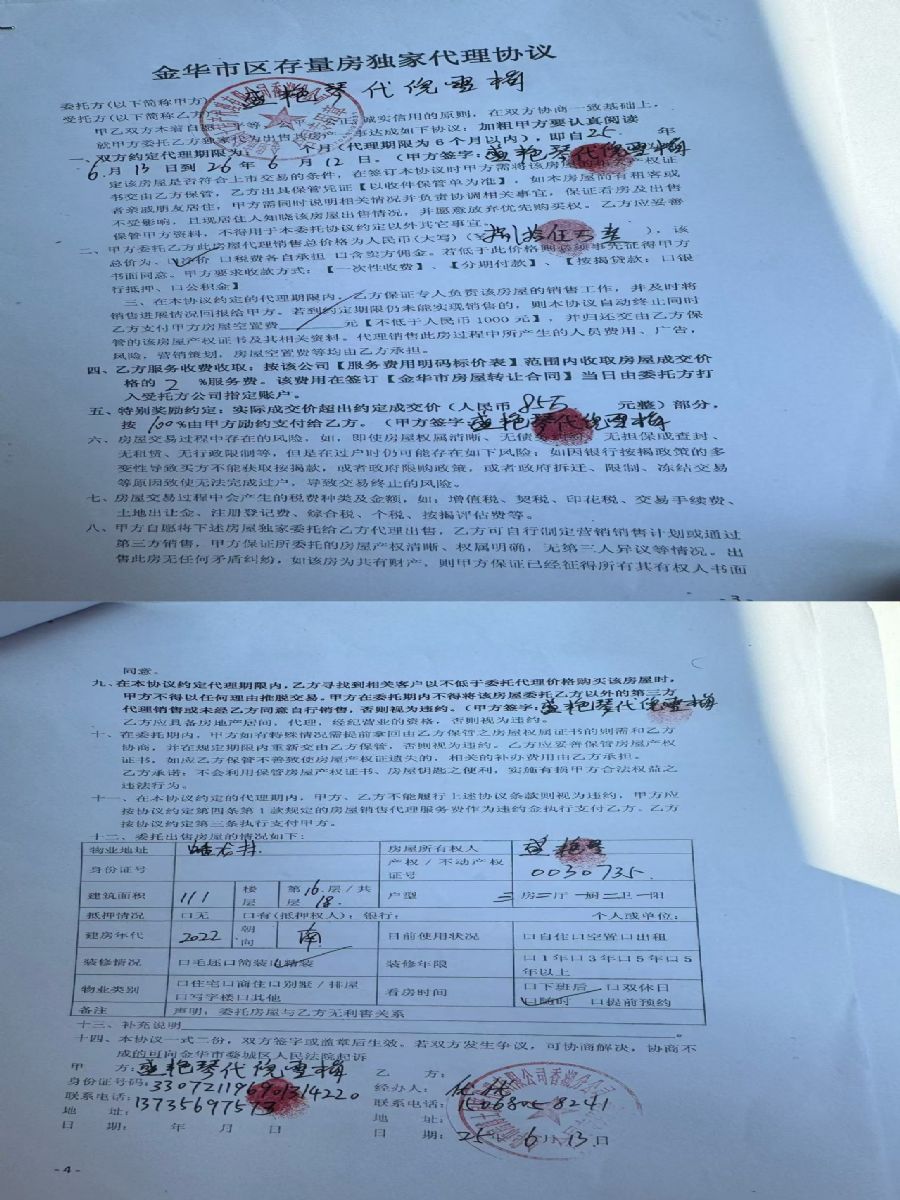 金华市区存量房独家代理协议
委托方(以下简称甲方) 盛艳琴代倪雪梅
受托方(以下简称乙方)
甲乙双方本着自愿、平等、公平、诚实信用的原则，在双方协商一致基础上，
就甲方委托乙方独家代为出售其房产一事达成如下协议：加粗甲方要认真阅读
一、双方约定代理期限为： 个月(代理期限为6个月以内)，即自25 年
6月13日到26年6月12日。(甲方签字：盛艳琴代倪雪梅
定该房屋是否符合上市交易的条件，在签订本协议时甲方需将该房 产权证
书交由乙方保管，乙方出具保管凭证【以收件保管单为准】，如本房屋尚有租客或
者亲戚朋友居住，甲方需同时说明相关情况并负责协调相关事宜，保证看房及出售
不受影响，且现居住人知晓该房屋出售情况，并愿意放弃优先购买权。乙方应妥善
保管甲方资料，不得用于本委托协议约定以外其它事宜。
二、甲方委托乙方此房屋代理销售总价格为人民币(大写) )，该
总价为、 口税费各自承担 口含卖方佣金。若低于此价格则必须事先征得甲方
书面同意。甲方要求收款方式：【一次性收费】、【分期付款】、【按揭贷款：口银
行抵押、口公积金】
三、在本协议约定的代理期限内，乙方保证专人负责该房屋的销售工作，并及时将
销售进展情况回报给甲方。若到约定期限仍未能实现销售的，则本协议自动终止同时
乙方支付甲方房屋空置费 元【不低于人民币1000元】，并归还交由乙方保
管的该房屋产权证书及其相关资料。代理销售此房过程中所产生的人员费用、广告，
风险，营销策划，房屋空置费等均由乙方承担。
四、乙方服务收费收取：按该公司【服务费用明码标价表】范围内收取房屋成交价
格的 2 %服务费。该费用在签订【金华市房屋转让合同】当日由委托方打
入受托方公司指定账户。
五、特别奖励约定：实际成交价超出约定成交价(人民币 85万 元整)部分，
按 100%由甲方励约支付给乙方。(甲方签字：盛艳琴代倪雪梅
六、房屋交易过程中存在的风险，如，即使房屋权属清晰、无债务纠纷、无担保或查封、
无租赁、无行政限制等，但是在过户时仍可能存在如下风险：如因银行按揭政策的多
变性导致买方不能获取按揭款，或者政府限购政策，或者政府拆迁、限制、冻结交易
等原因致使无法完成过户，导致交易终止的风险。
七、房屋交易过程中会产生的税费种类及金额，如：增值税、契税、印花税、交易手续费、
土地出让金、注册登记费、综合税、个税、按揭评估费等。
八、甲方自愿将下述房屋独家委托给乙方代理出售，乙方可自行制定营销销售计划或通过
第三方销售，甲方保证所委托的房屋产权清晰、权属明确，无第三人异议等情况。出
售此房无任何矛盾纠纷，如该房为共有财产，则甲方保证已经征得所有其有权人书面
-3-
同意。
九、在本协议约定代理期限内，乙方寻找到相关客户以不低于委托代理价格购买该房屋时，
甲方不得以任何理由推脱交易。甲方在委托期内不得将该房屋委托乙方以外的第三方
代理销售或未经乙方同意自行销售，否则视为违约。(甲方签字：盛艳琴代倪雪梅
乙方应具备房地产居间，代理，经纪营业的资格，否则视为违约。
十、在委托期内，甲方如有特殊情况需提前拿回由乙方保管之房屋权属证书的则需和乙方
协商，并在规定期限内重新交由乙方保管，否则视为违约。乙方应妥善保管房屋产权
证书，如应乙方保管不善致使房屋产权证遗失的，相关的补办费用由乙方承担。
乙方承诺：不会利用保管房屋产权证书、房屋钥匙之便利，实施有损甲方合法权益之
违法行为。
十一、在本协议约定的代理期内，甲方、乙方不能履行上述协议条款则视为违约，甲方应
按协议约定第四条第1款规定的房屋销售代理服务费作为违约金执行支付乙方。乙方
按协议约定第三条执行支付甲方。
十二、委托出售房屋的情况如下：
物业地址 房屋所有权人 盛艳琴
身份证号 产权/不动产权证号 0030735.
建筑面积 111 楼层 第16层/共18层 户型 三房二厅一厨二卫一阳
抵押情况 口无 口有(抵押权人)：银行： 个人或单位：
建房年代 2022 朝向 南 目前使用状况 口自住口空置口出租
装修情况 口毛坯口简装口精装 装修年限 口1年口3年口5年口5年以上
物业类别 口住宅口商住口别墅/排屋口写字楼口其他 看房时间 口下班后 口双休日 口随时 口提前预约
备注 声明：委托房屋与乙方无利害关系
十三、补充说明
十四、本协议一式二份，双方签字或盖章后生效。若双方发生争议，可协商解决，协商不
成的可向金华市婺城区人民法院起诉
甲 方：盛艳琴代倪雪梅 乙 方：
身份证号码：330721196901314220 经办人：
联系电话：13735697573 联系电话：
地 址： 地 址：
日 期： 年 月 日 日 期：25年6月13日
-4-